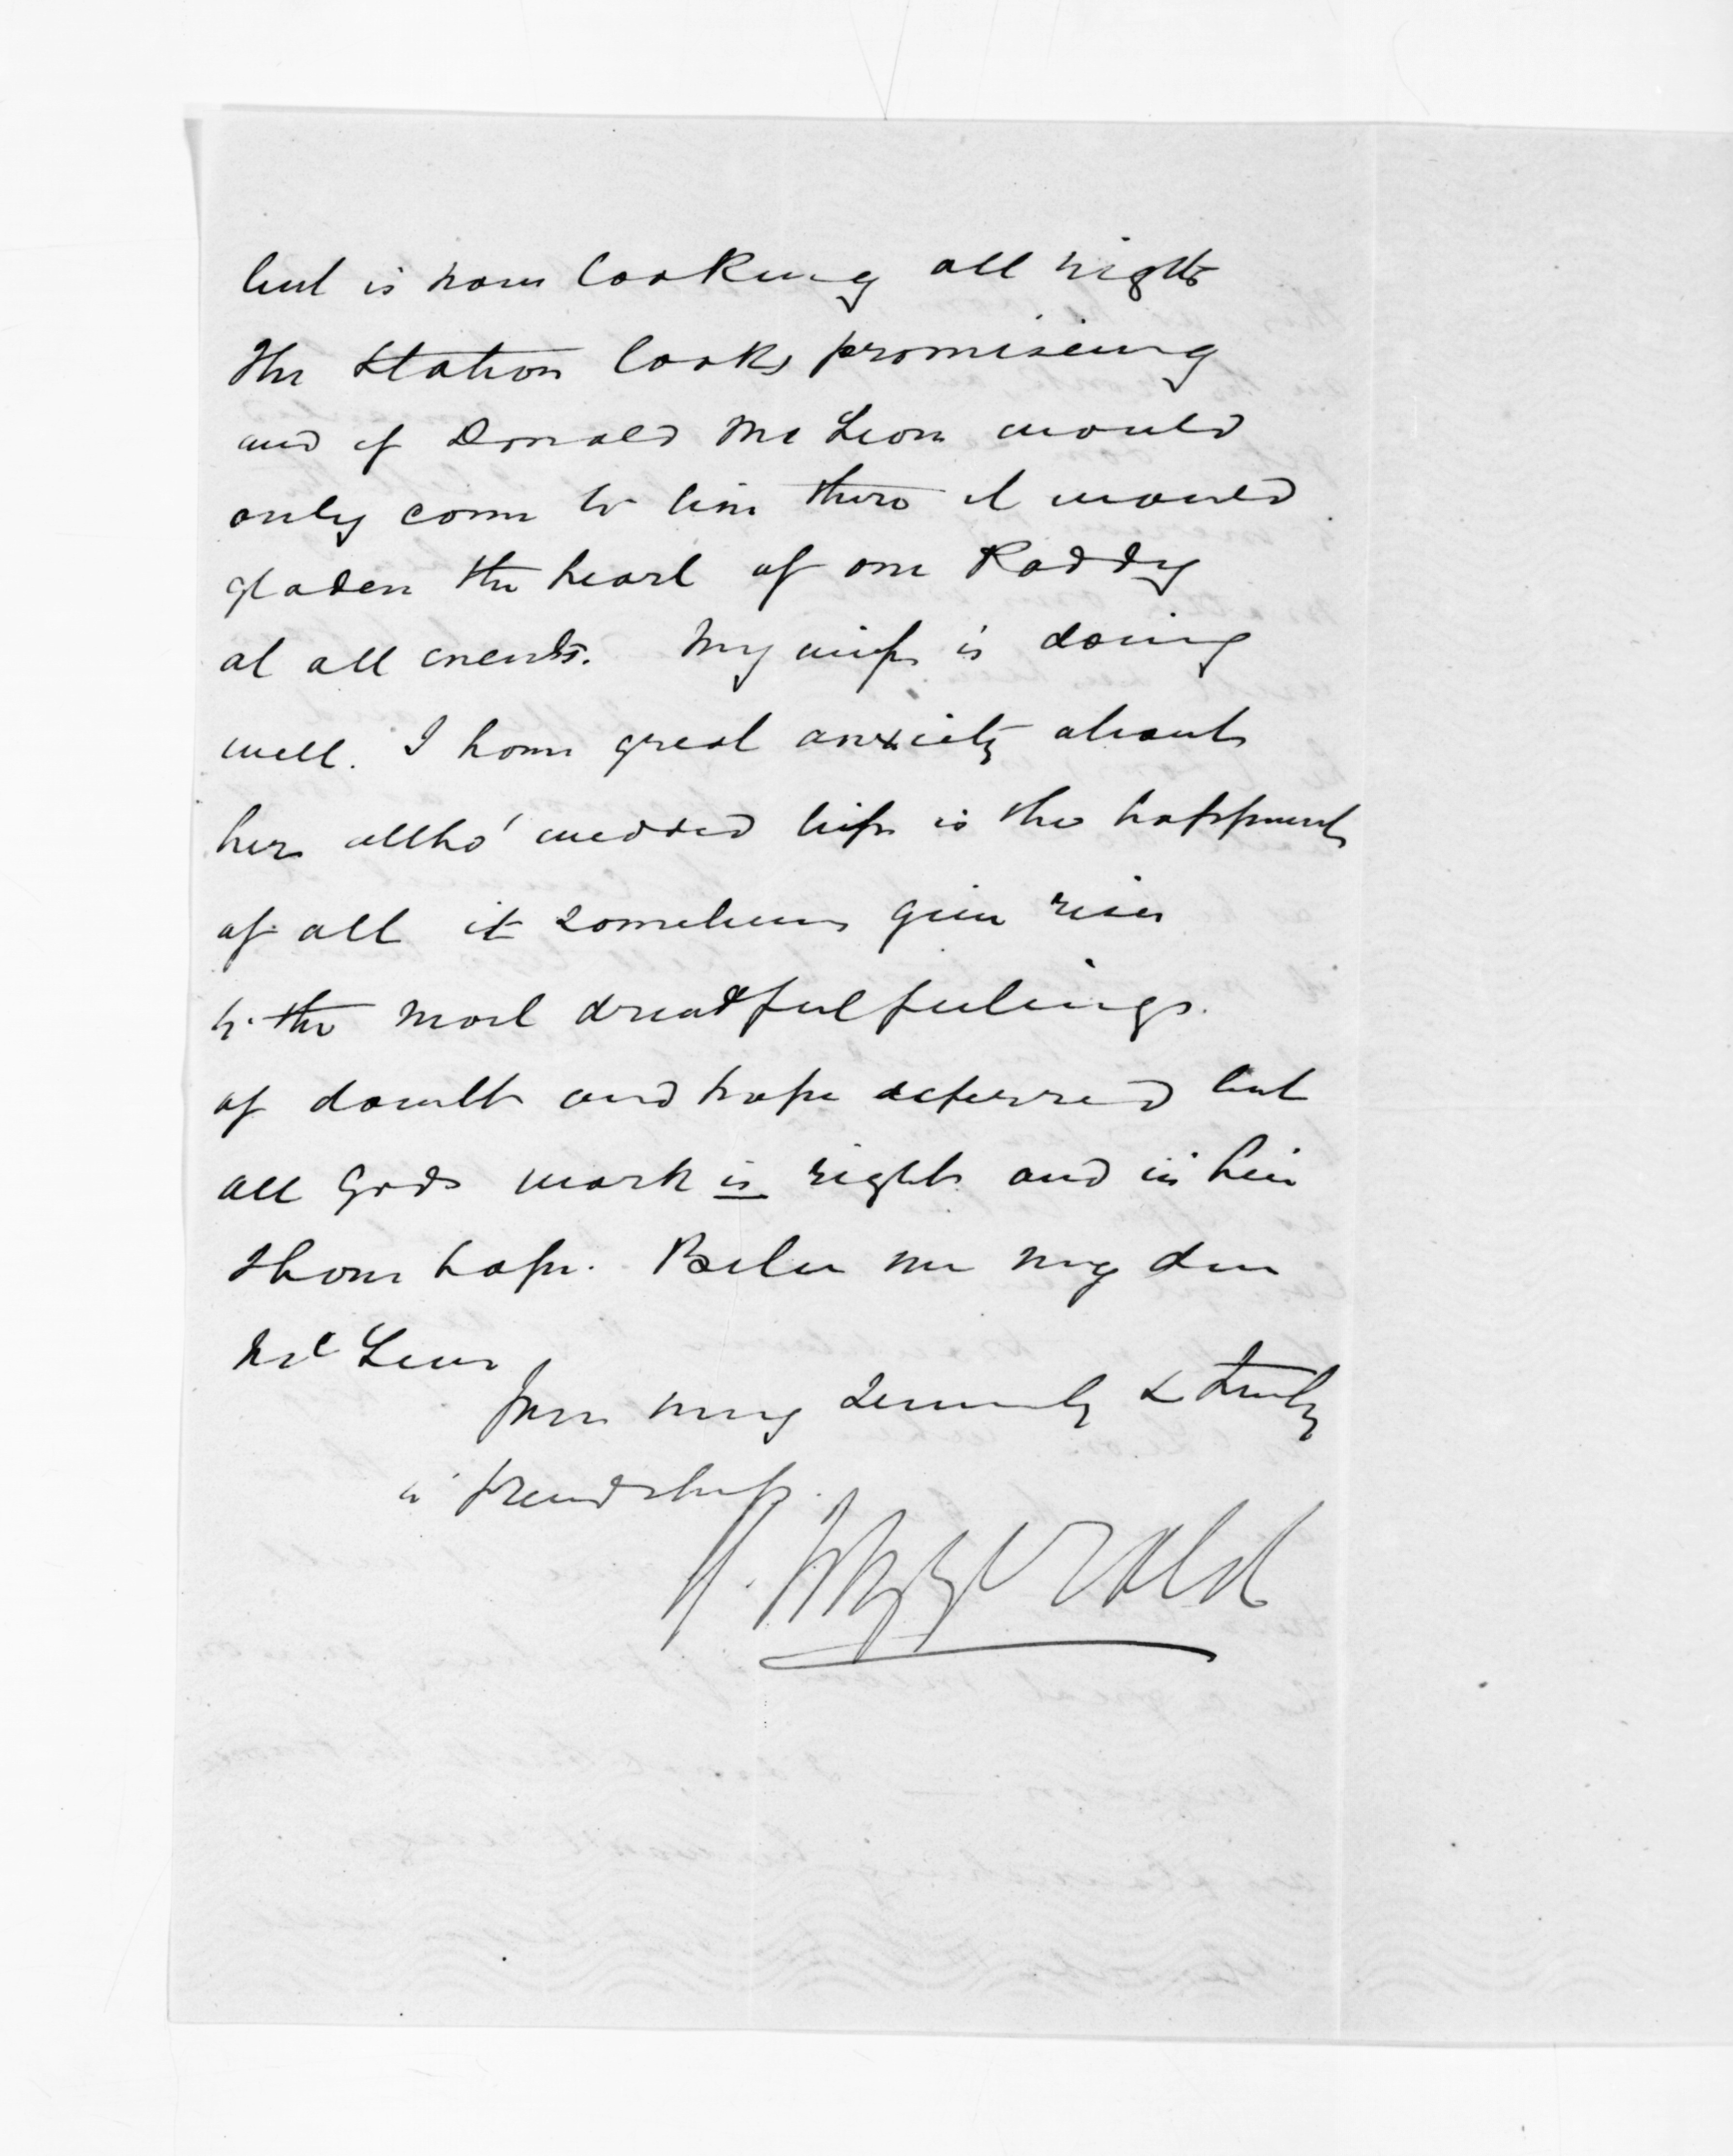 but is now looking all right
the Station looks promiseing
and if Donald McLean would
only come to live there it would
gladen the heart of one Paddy
at all events. My wife is doing
well. I have great anxiety about
her altho' wedded life is the happiest
of all it sometimes give rise
to the most dreadful feelings.
of doubt and hope deferred but
all Gods work is right and in him
I have hope. Believe me my dear
McLean
Yours very sincerely & truly
in friendship.
Fitzgerald